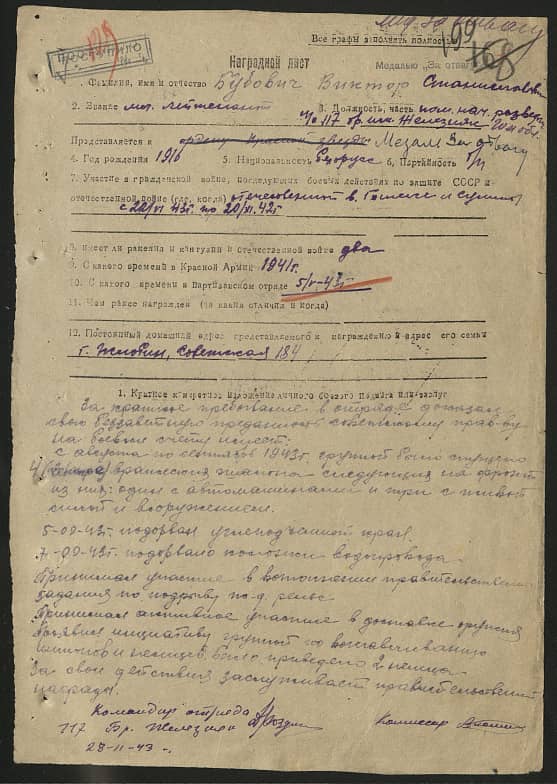 Мед. За отвагу
Все графы заполнять полностью
199
168
129
Наградной лист Медалью „За отвагу
1. Фамилия, имя и отчество Бубович Виктор Станиславович
2. Звание мл. лейтенант 3. Должность, часть пом. нач. разведки
п/о 117 бр. им. Железняк
Представляется к ордену Красной звезды Медали За отвагу
4. Год рождения 1916 5. Национальность белорус 6. Партийность б/п
7. Участие в гражданской войне, последующих боевых действиях по защите СССР и
отечественной войне (где, когда) отечественной в.
с 22/VI по 20/XI.42г
8. имеет ли ранения и контузии в отечественной войне два
9. С какого времени в Красной Армии 1941г.
10. С какого времени в партизанском отряде 5/V-43г
11. Чем ранее награжден (за какие отличия и когда)
12. Постоянный домашний адрес представляемого к награждению и адрес его семьи
г. Жлобин, Советская 184
1. Краткое конкретное изложение личного боевого подвига или заслуг
За краткое пребывание в отряде доказал
свою беззаветную преданность советскому прав-ву
На боевом счету имеет:
с августа по сентябрь 1943г. группой было спущено
4 вражеских эшелона следующих на фронт
из них: один с автомашинами и три с живой
силой и вооружением.
5-09-43г. подорвал углеподъемный кран.
7-09-43г. подорвано колонки водопровода.
Принимал участие в выполнении правительственного
задания по подрыву ж.д. рельс
Принимал активное участие в доставке оружия
Проявил инициативу группой по вылавливанию
шпионов и немцев. Было приведено 2 немца.
За свои действия заслуживает правительственной
награды.
Командир отряда
117 Бр. Железняк Комиссар
28-11-43г.